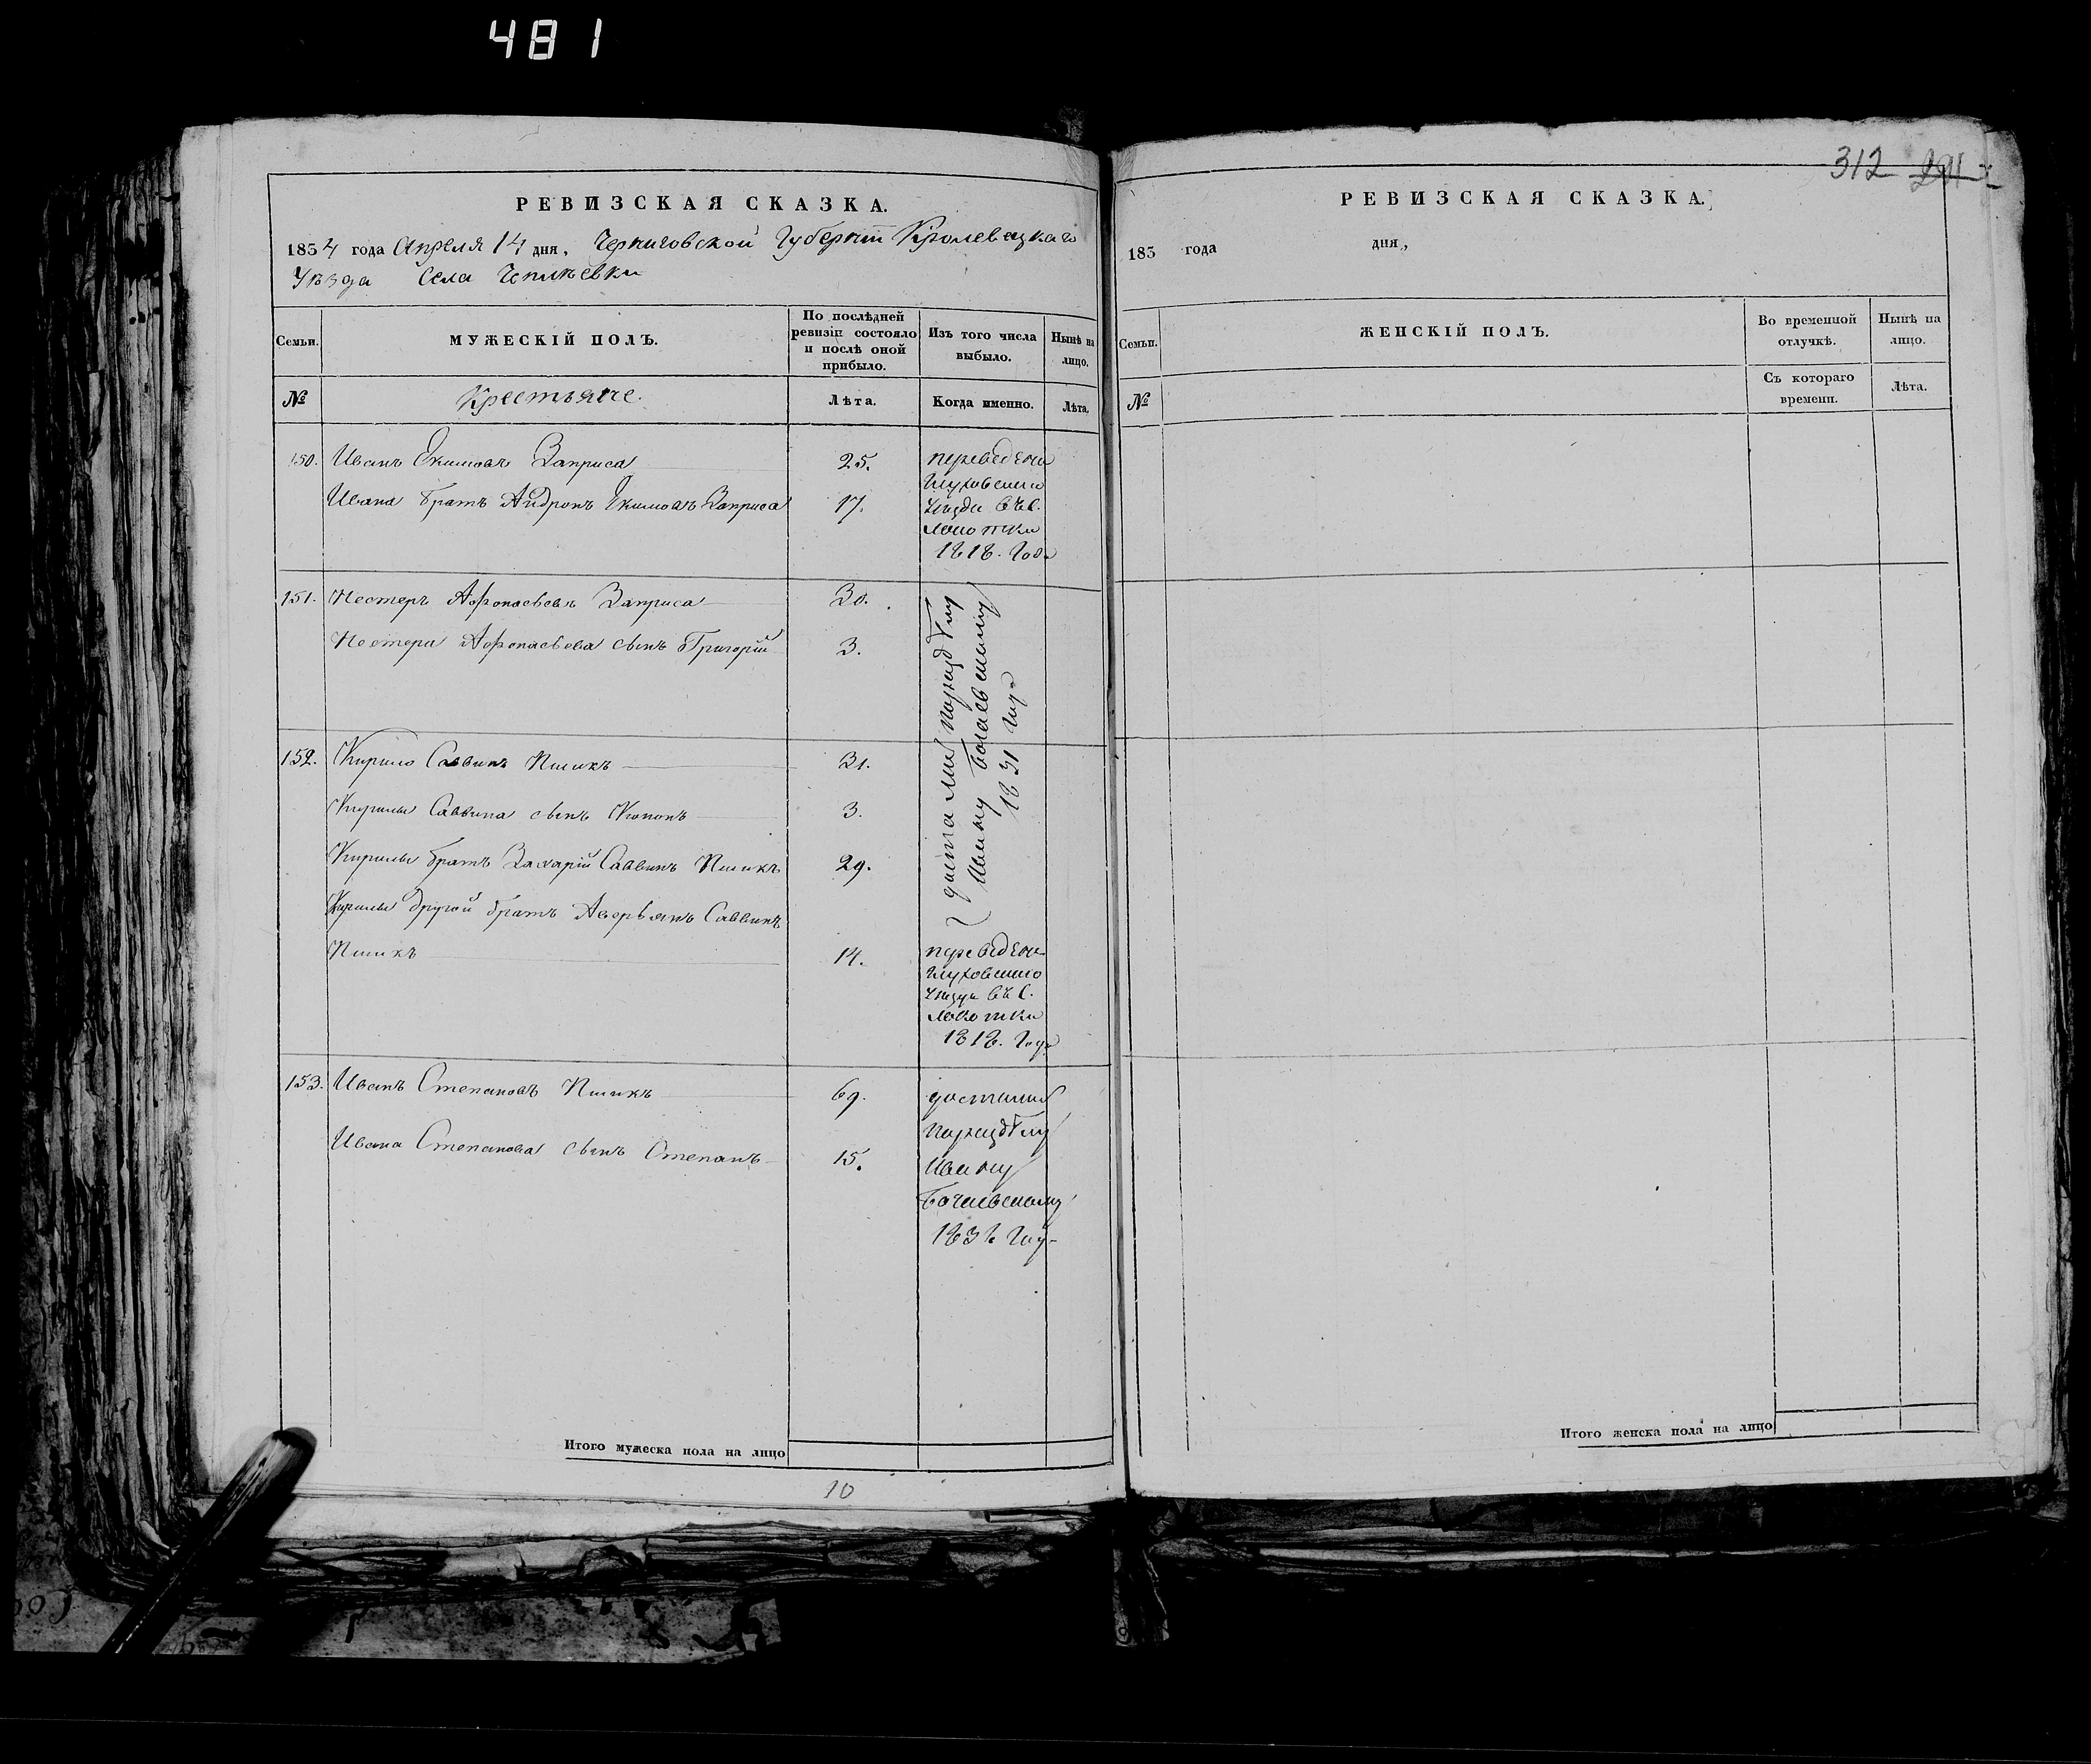 481
РЕВИЗСКАЯ СКАЗКА.
1834 года Апреля 14 дня, Черниговской Губернiи Кролевецкаго
Уѣзда Села Чеплѣевки
Семьи.
МУЖЕСКІЙ ПОЛЪ.
По послѣдней ревизіи состояло и послѣ оной прибыло.
Изъ того числа выбыло.
Нынѣ на лицо.
№
Крестьяне.
Лѣта.
Когда именно.
Лѣта.
150. Иванъ Екимовъ Заприса 25. переведены
Глуховскаго
Ивана братъ Андронъ Екимовъ Заприса 17. уезда въ с.
Локотки
1818. Года
151. Нестеръ Афонасьевъ Заприса 30.
Нестера Афонасьева сынъ Григорій 3.
достались
Ивану
1831 Года
152. Кирило Саввинъ Пшикъ 31.
Кирилы Саввина сынъ Кононъ 3.
Кирилы братъ Захарій Саввинъ Пшикъ 29.
Кирилы другой братъ Аверьянъ Саввинъ
Пшикъ 14. переведены
Глуховскаго
уезда въ с.
Локотки
1818. Года
153. Иванъ Степановъ Пшикъ 69. достались
Ивана Степанова сынъ Степанъ 15. Ивану
Итого мужеска пола на лицо
10
312
РЕВИЗСКАЯ СКАЗКА.
183 года дня,
Семьи.
ЖЕНСКІЙ ПОЛЪ.
Во временной отлучкѣ.
Нынѣ на лицо.
№
Съ котораго времени.
Лѣта.
Итого женска пола на лицо